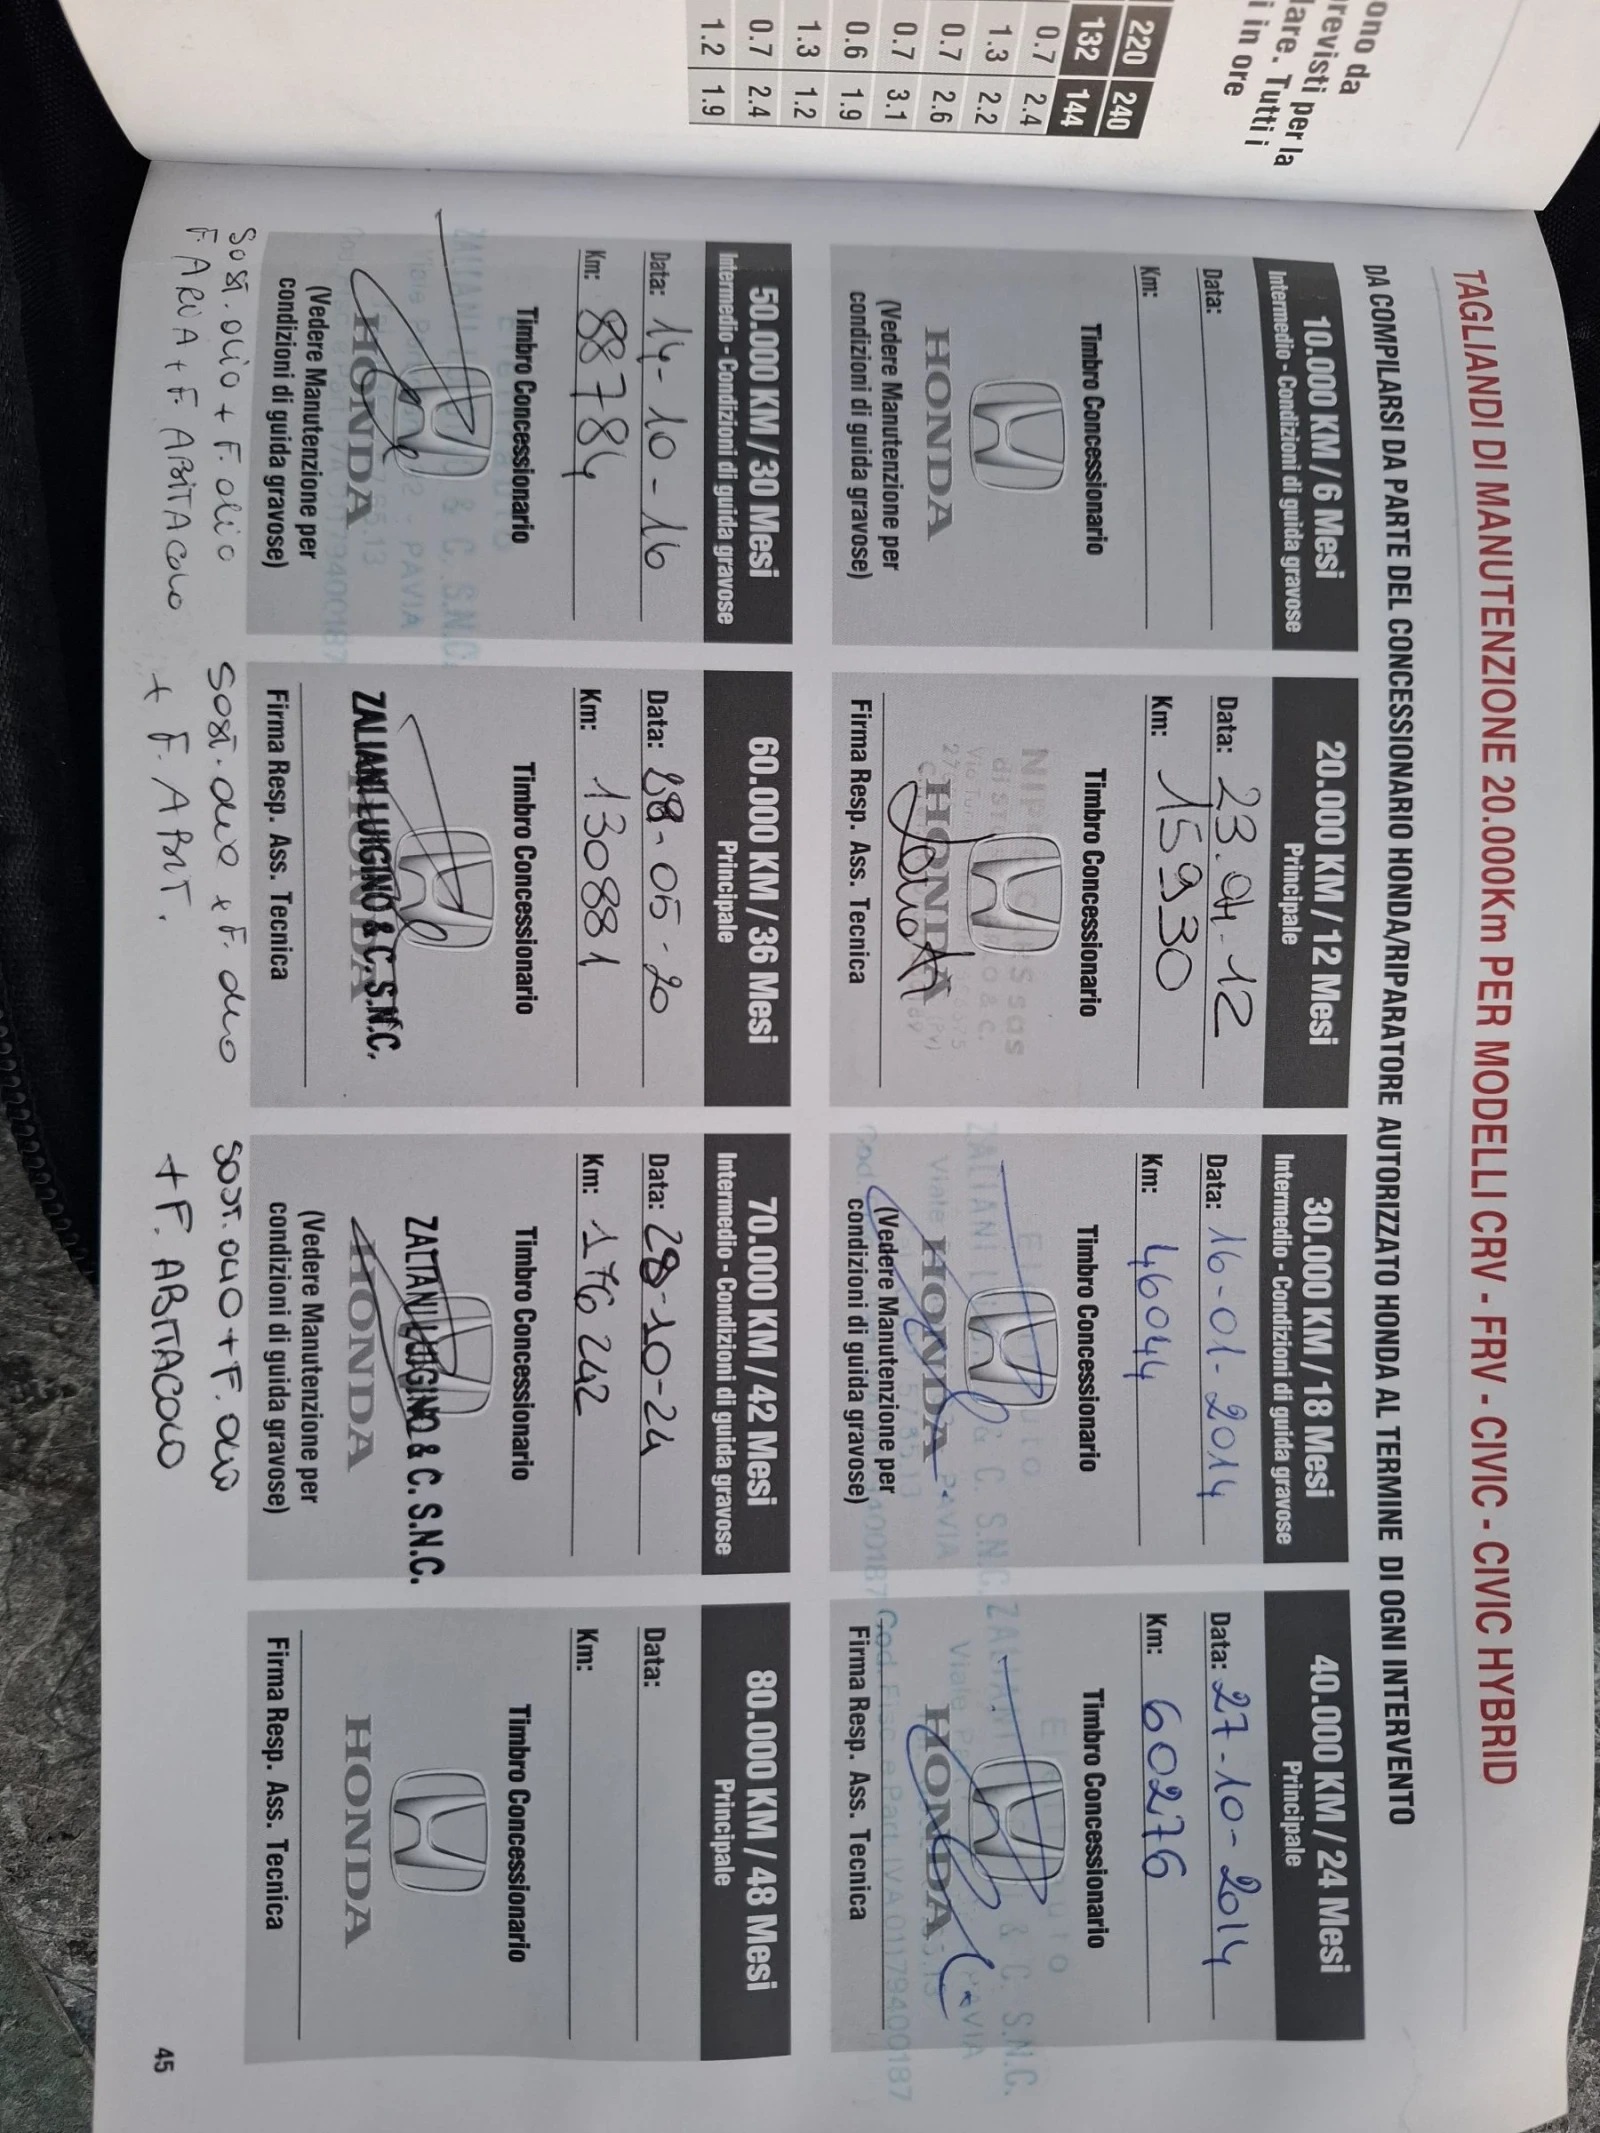 ono da
revisti per la
lare. Tutti i
i in ore
220 240
132 144
0.7 2.4
1.3 2.2
0.7 2.6
0.7 3.1
0.6 1.9
1.3 1.2
0.7 2.4
1.2 1.9
TAGLIANDI DI MANUTENZIONE 20.000Km PER MODELLI CRV - FRV - CIVIC - CIVIC HYBRID
DA COMPILARSI DA PARTE DEL CONCESSIONARIO HONDA/RIPARATORE AUTORIZZATO HONDA AL TERMINE DI OGNI INTERVENTO
10.000 KM / 6 Mesi
Intermedio - Condizioni di guida gravose
Data:
Km:
Timbro Concessionario
HONDA
(Vedere Manutenzione per
condizioni di guida gravose)
20.000 KM / 12 Mesi
Principale
Data: 23.04.12
Km: 15930
Timbro Concessionario
HONDA
Firma Resp. Ass. Tecnica
30.000 KM / 18 Mesi
Intermedio - Condizioni di guida gravose
Data: 16-01-2014
Km: 46044
Timbro Concessionario
ZALIANI & C. S.N.C.
Viale PAVIA
HONDA
(Vedere Manutenzione per
condizioni di guida gravose)
40.000 KM / 24 Mesi
Principale
Data: 27-10-2014
Km: 60276
Timbro Concessionario
ZALIANI & C. S.N.C.
Viale PAVIA
HONDA
Cod. Fisc. e Part. IVA 01179400187
Firma Resp. Ass. Tecnica
50.000 KM / 30 Mesi
Intermedio - Condizioni di guida gravose
Data: 14-10-16
Km: 88784
Timbro Concessionario
ZALIANI & C. S.N.C.
Viale PAVIA
HONDA
(Vedere Manutenzione per
condizioni di guida gravose)
SOST. OLIO + F. OLIO
F. ARIA + F. ABITACOLO
60.000 KM / 36 Mesi
Principale
Data: 28-05-20
Km: 130881
Timbro Concessionario
HONDA
ZALIANI LUIGINO & C. S.N.C.
Firma Resp. Ass. Tecnica
SOST. OLIO + F. OLIO
+ F. ABIT.
70.000 KM / 42 Mesi
Intermedio - Condizioni di guida gravose
Data: 28-10-24
Km: 176242
Timbro Concessionario
ZALIANI LUIGINO & C. S.N.C.
HONDA
(Vedere Manutenzione per
condizioni di guida gravose)
SOST. OLIO + F. OLIO
+ F. ABITACOLO
80.000 KM / 48 Mesi
Principale
Data:
Km:
Timbro Concessionario
HONDA
Firma Resp. Ass. Tecnica
45